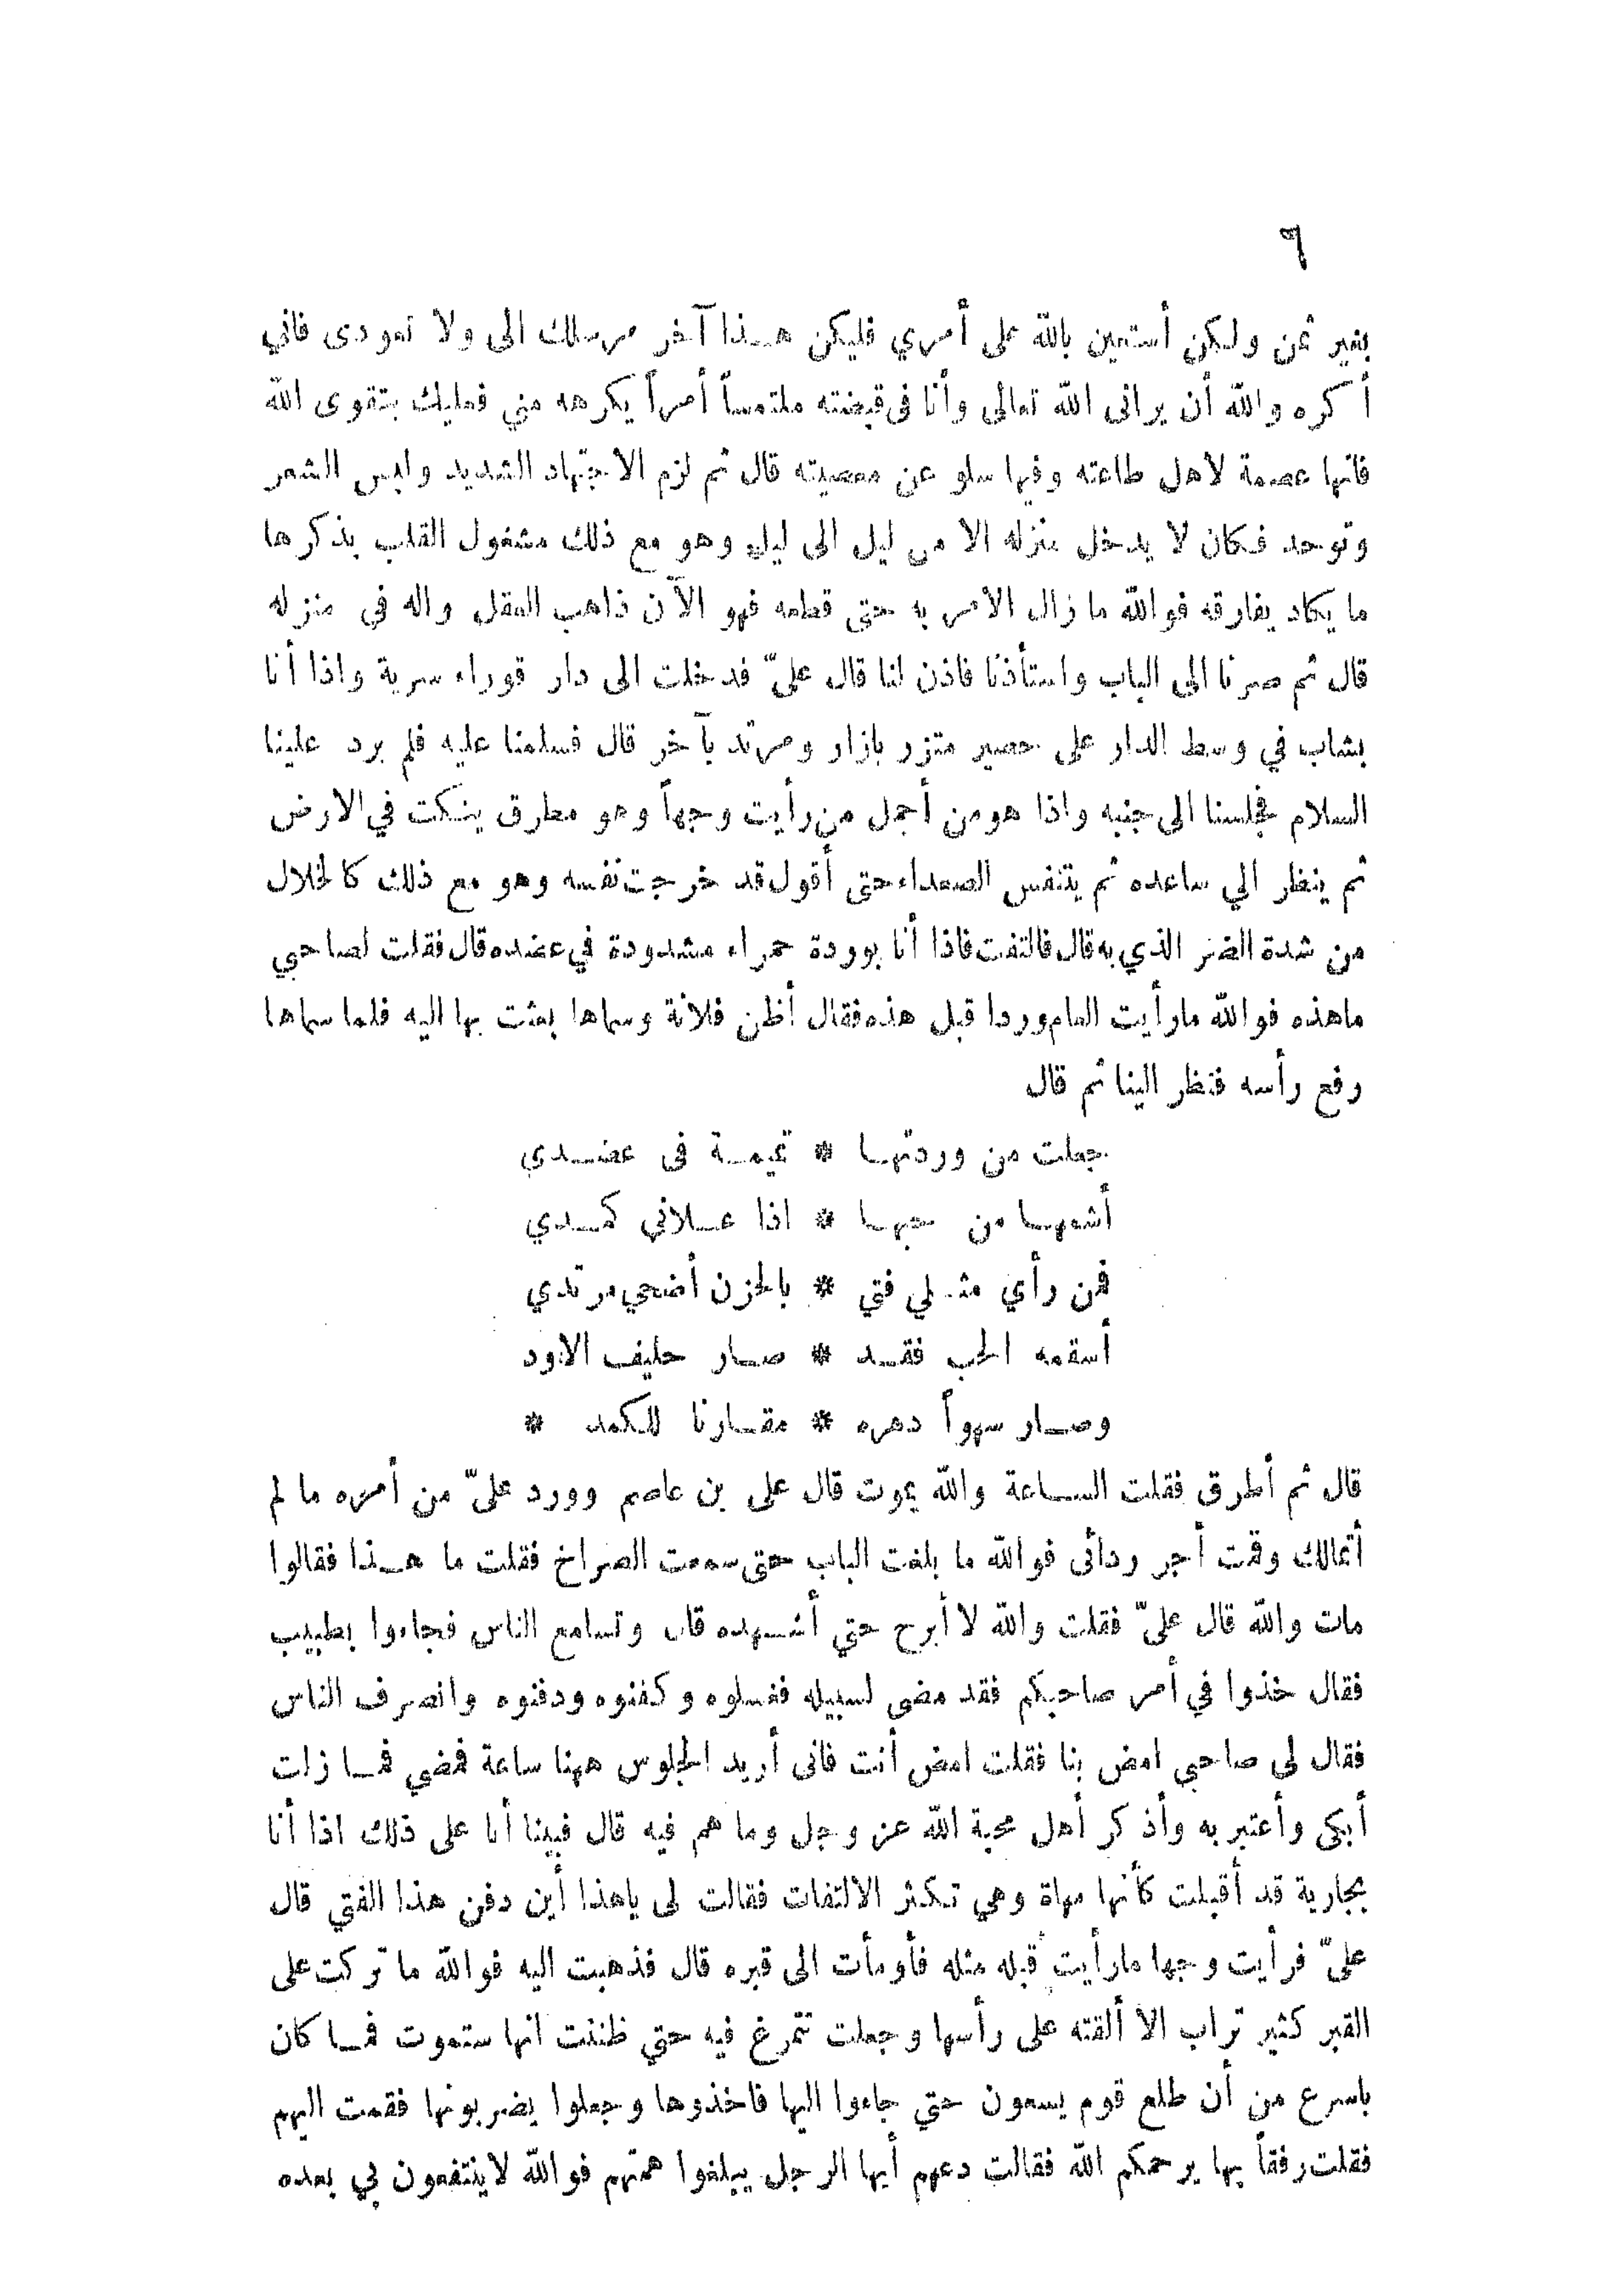 ٦
بغير ثمن ولكن أستعين بالله على أمري فليكن هـذا آخر مرسلك الى ولا تعودى فاني
أكره والله أن يرانى الله تعالى وأنا فى قبضته ملتمساً أمراً يكرهه مني فعليك بتقوى الله
فانها عصمة لاهل طاعته وفيها سلو عن معصيته قال ثم لزم الاجتهاد الشديد ولبس الشعر
وتوحد فكان لا يدخل منزله الا من ليل الى ليل وهو مع ذلك مشغول القلب بذكرها
ما يكاد يفارقه فوالله ما زال الامر به حتى قطعه فهو الآن ذاهب العقل واله في منزله
قال ثم صرنا الى الباب واستأذنا فاذن لنا قال علىّ فدخلت الى دار قوراء سرية واذا أنا
بشاب في وسط الدار على حصير متزر بازار ومرتد بآخر قال فسلمنا عليه فلم يرد علينا
السلام فجلسنا الى جنبه واذا هو من أجمل من رأيت وجهاً وهو مطرق ينكت في الارض
ثم ينظر الي ساعده ثم يتنفس الصعداء حتى أقول قد خرجت نفسه وهو مع ذلك كالخلال
من شدة الضر الذي به قال فالتفت فاذا أنا بوردة حمراء مشدودة في عضده قال فقلت لصاحبي
ماهذه فوالله مارأيت العام وردا قبل هذه فقال أظن فلانة وسماها بعثت بها اليه فلما سماها
رفع رأسه فنظر الينا ثم قال
جعلت من وردتهـا * تميمـة فى عضـدي
أشمهـا من حبهـا * اذا عـلاني كمـدي
فمن رأي مثـلي فتي * بالحزن أضحي مرتدي
أسقمه الحب فقـد * صـار حليف الاود
وصـار سهواً دهره * مقـارنا للكمد *
قال ثم أطرق فقلت السـاعة والله يموت قال على بن عاصم وورد علىّ من أمره ما لم
أتمالك وقمت أجر ردائى فوالله ما بلغت الباب حتى سمعت الصراخ فقلت ما هـذا فقالوا
مات والله قال علىّ فقلت والله لا أبرح حتي أشـهده قال وتسامع الناس فجاءوا بطبيب
فقال خذوا في أمر صاحبكم فقد مضى لسبيله فغسلوه وكفنوه ودفنوه وانصرف الناس
فقال لى صاحبي امض بنا فقلت امض أنت فانى أريد الجلوس ههنا ساعة فمضي فمـا زلت
أبكى وأعتبر به وأذكر أهل محبة الله عز وجل وما هم فيه قال فبينا أنا على ذلك اذا أنا
بجارية قد أقبلت كأنها مهاة وهي تكثر الالتفات فقالت لى ياهذا أين دفن هذا الفتي قال
علىّ فرأيت وجها مارأيت قبله مثله فأومأت الى قبره قال فذهبت اليه فوالله ما تركت على
القبر كثير تراب الا ألقته على رأسها وجعلت تتمرغ فيه حتي ظننت انها ستموت فمـا كان
باسرع من أن طلع قوم يسعون حتي جاءوا اليها فاخذوها وجعلوا يضربونها فقمت اليهم
فقلت رفقاً بها يرحمكم الله فقالت دعهم أيها الرجل يبلغوا همتهم فوالله لاينتفعون بي بعده